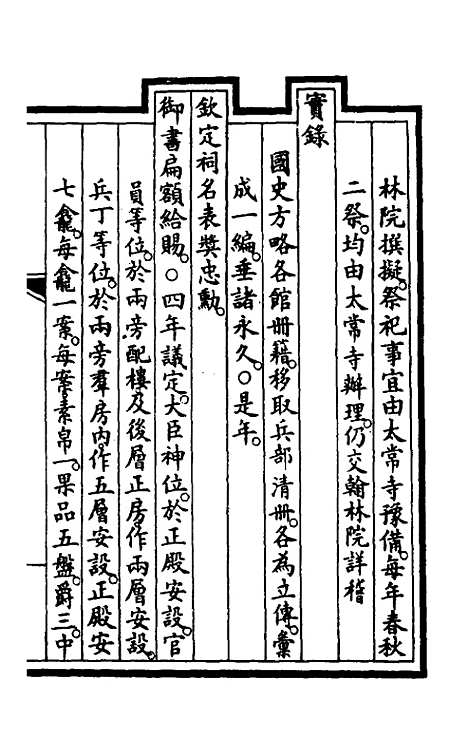 林院撰擬。祭祀事宜由太常寺豫備。每年春秋
二祭。均由太常寺辦理。仍交翰林院詳稽
實錄
國史方略各館冊籍。移取兵部清冊。各為立傳。彙
成一編。垂諸永久。○是年。
欽定祠名表獎忠勳。
御書扁額給賜。○四年議定。大臣神位。於正殿安設。官
員等位。於兩旁配樓及後層正房。作兩層安設。
兵丁等位。於兩旁羣房內。作五層安設。正殿安
七龕。每龕一案。每案素帛一。果品五盤。爵三。中